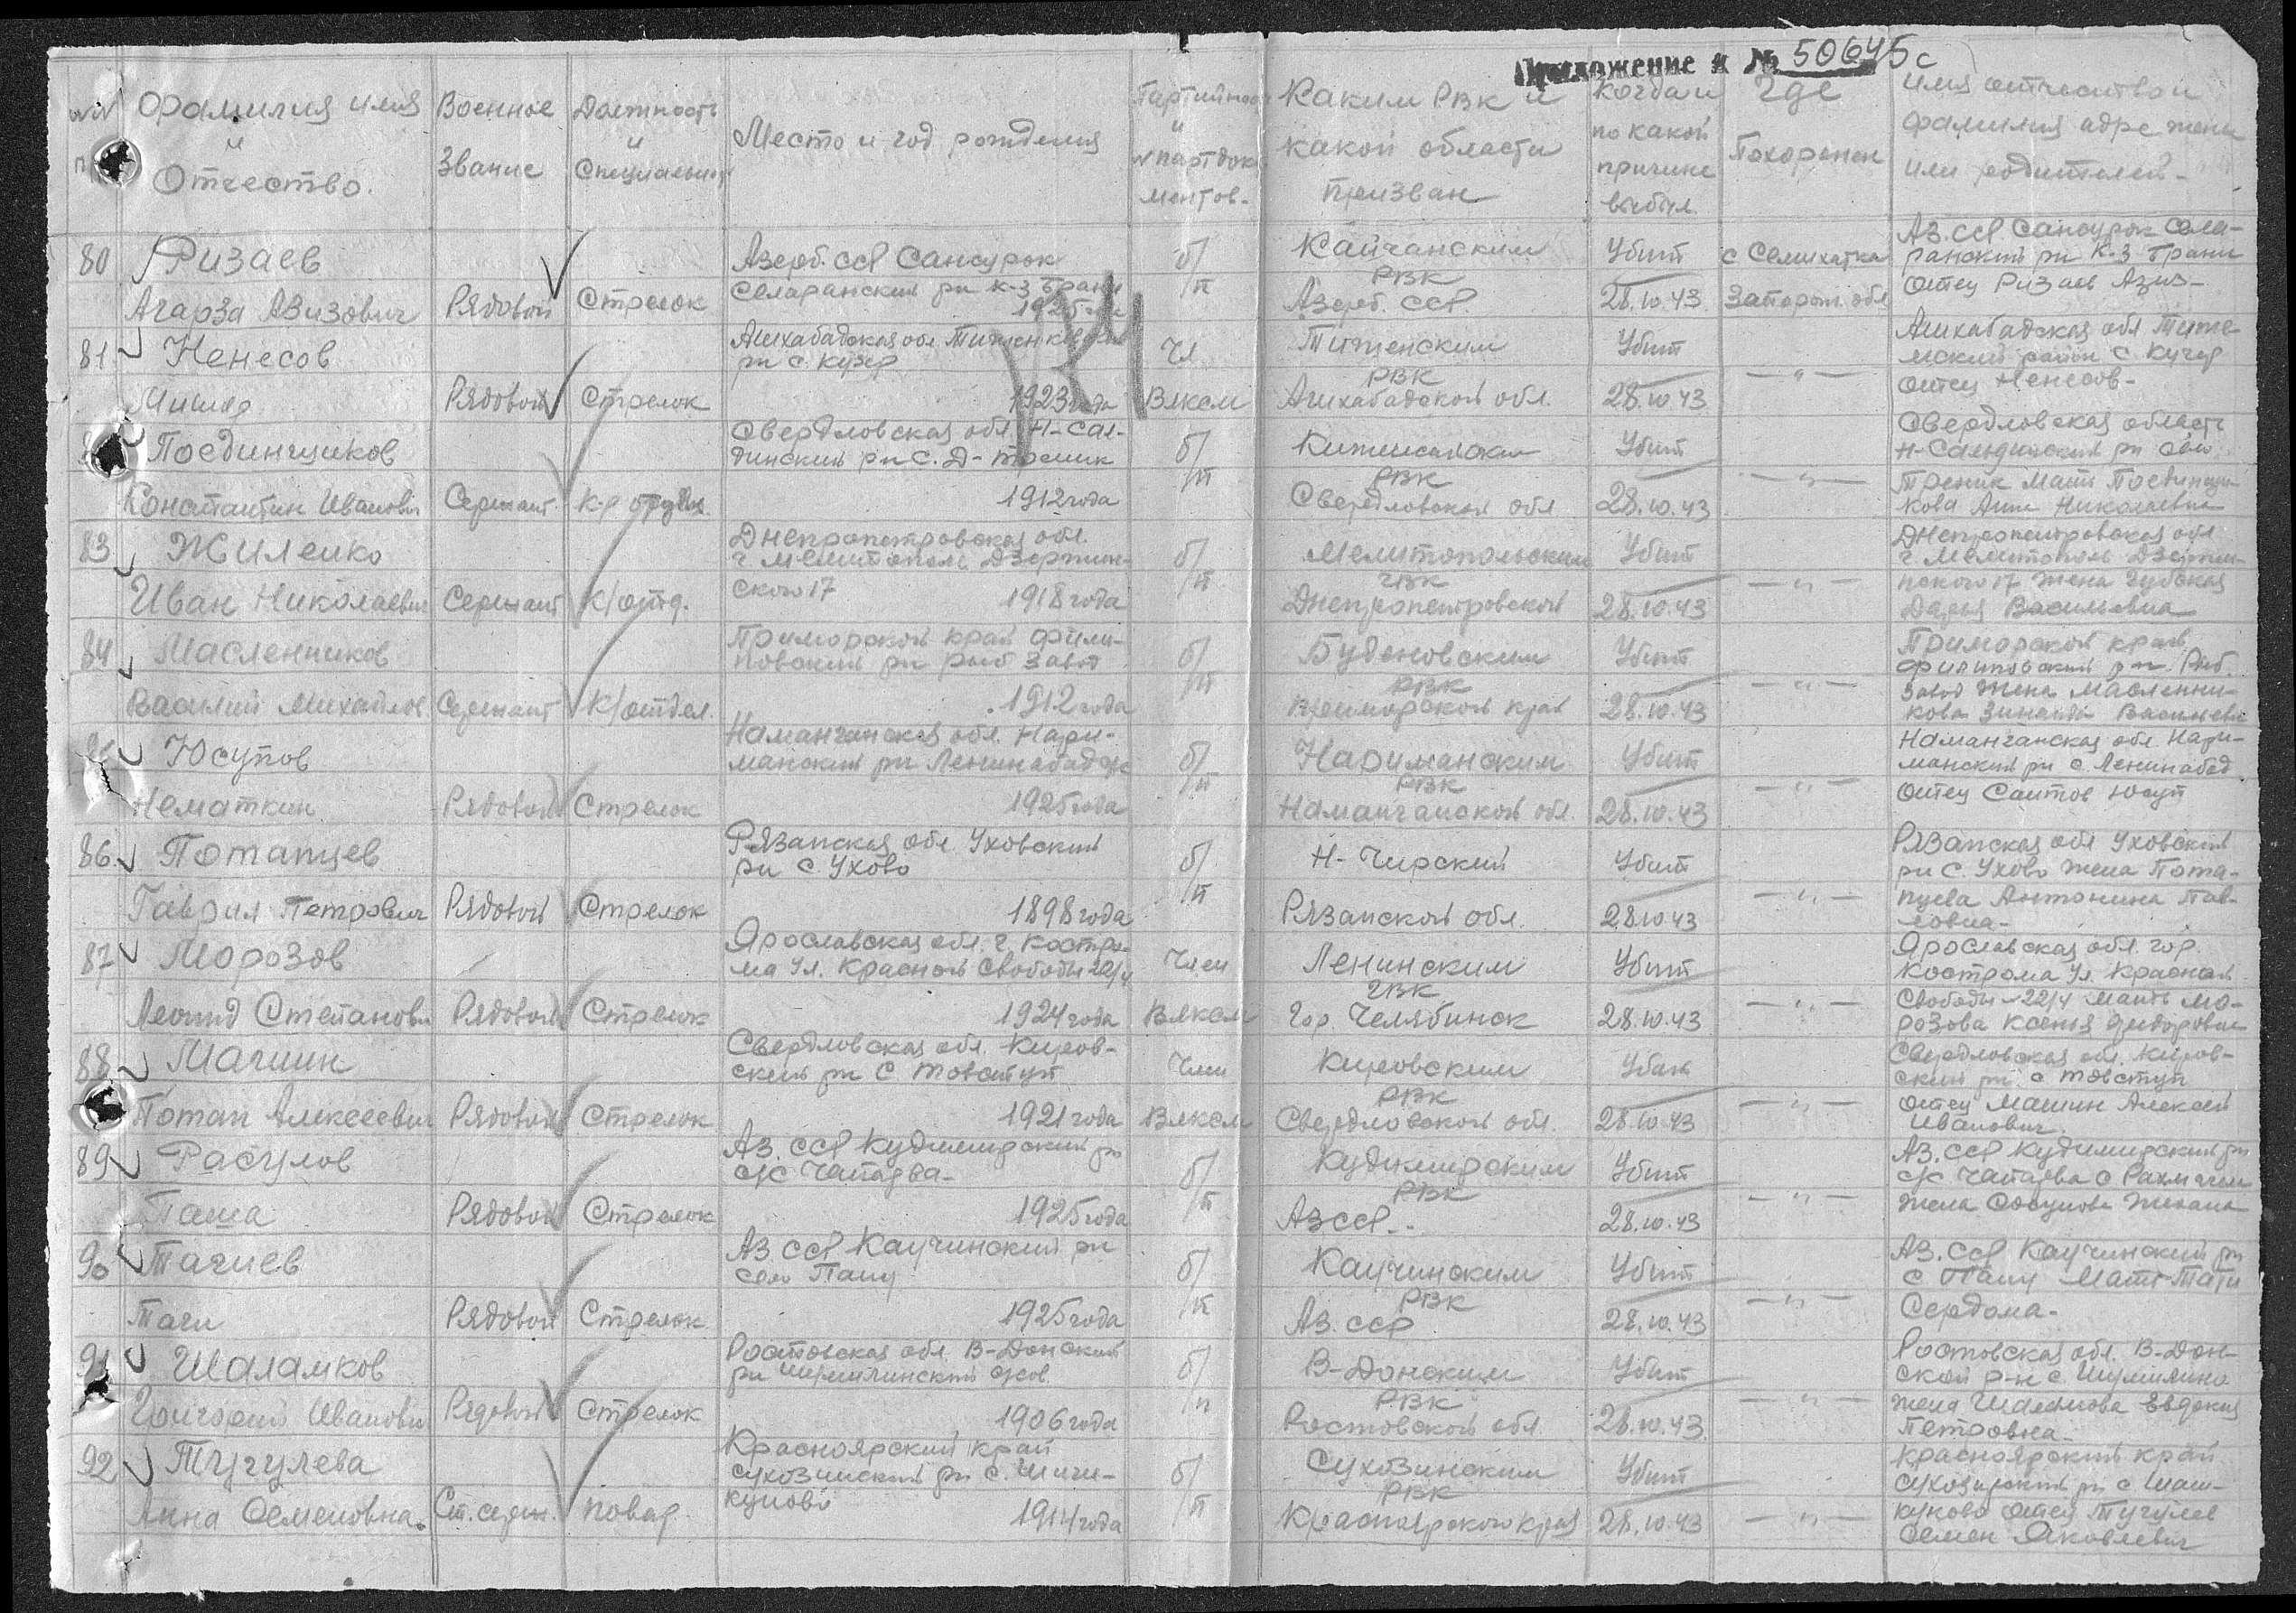 Приложение к № 50645с
№№ Фамилия имя и Отчество. Военное Звание Должность и Специальность Место и год рождения Партийность и № партдокументов. Каким РВК и какой области призван Когда и по какой причине выбыл Где Похоронен имя отчество и фамилия адре жены или родителей
80 Ризаев Азерб. сср Сансурок б/п Кайчанским Убит с Семихатка Аз. сср. Сансурок
РВК
Агарза Азизович Рядовой Стрелок 1925 Азерб. сср. 28.10.43 Запорож. обл отец Ризаев Азиз
81 Ненесов Ашхабадская обл Чл Убит Ашхабадская обл
РВК
Рядовой Стрелок 1923 года Влксм Ашхабадской обл. 28.10.43 — " — отец Ненесов
Поединщиков Свердловская обл. Н-Сал- б/п Убит Свердловская область
динский рн с. Д- РВК Н-Салдинский рн село
Константин Иванович Сержант К-р орудия 1912 года Свердловская обл 28.10.43 — " — кова Анна Николаевна
83 Жиленко Днепропетровская обл. б/п Мелитопольским Убит Днепропетровская обл
г Мелитополь Дзержин- ГВК г Мелитополь Дзержин-
Иван Николаевич Сержант К/отд. ского 17 1918 года Днепропетровской 28.10.43 — " — ского 17 жена
Дарья Васильевна
84 Масленников Приморской край Фили- б/п Буденовским Убит Приморской край
повский рн рыб завод РВК Филиповский рн. Рыб.
Василий Михайлов Сержант К/отдел. 1912 года Приморской край 28.10.43 — " — завод жена Масленни-
кова Зинаида Васильевна
Юсупов Наманганская обл. Нари- б/п Нариманским Убит Наманганская обл. Нари-
манский рн Ленинабад РВК манский рн с. Ленинабад
Нематкин Рядовой Стрелок 1925 года Наманганской обл. 28.10.43 — " — отец Саитов Юсуп
86 Потапцев Рязанская обл. Уховский б/п Н-Чирский Убит Рязанская обл Уховский
рн с. Ухово рн с. Ухово жена Пота-
Гаврил Петрович Рядовой Стрелок 1898 года Рязанской обл. 28.10.43 — " — пцева Антонина Пав-
ловна-
87 Морозов Ярославская обл. г. Костро- Член Ленинским Убит Ярославская обл. гор.
ма ул. Красной Свободы 22/4 ГВК Кострома ул. Красной
Леонид Степанович Рядовой Стрелок 1924 года Влксм гор. Челябинск 28.10.43 — " — Свободы 22/4 мать Мо-
розова Ксения
88 Машин Свердловская обл. Киров- Член Кировским Убит Свердловская обл. Киров-
ский рн с Товступ РВК ский рн. с Товступ
Потап Алексеевич Рядовой Стрелок 1921 года Влксм Свердловской обл. 28.10.43 — " — отец Машин Алексей
Иванович.
89 Расулов Аз. сср Кудимирский рн б/п Кудимирским Убит Аз. сср Кудимирский рн
с/с Чапаева- РВК с/с Чапаева с
Паша Рядовой Стрелок 1925 года Аз сср.. 28.10.43 — " — жена
90 Тагиев Аз. сср Каучинский рн б/п Каучинским Убит Аз. сср Каучинский рн
село Папу РВК с Папу Мать Таги
Таги Рядовой Стрелок 1925 года Аз. сср 28.10.43 — " — Сердома-
91 Шаламков Ростовская обл. В-Донский б/п В-Донским Убит Ростовская обл. В-Дон-
рн РВК ской р-н с. Шумилино
Григорий Иванович Рядовой Стрелок 1906 года Ростовской обл. 28.10.43 — " — жена Евдокия
Петровна-
92 Тугулева Красноярский край б/п Сухозинским Убит Красноярский край
сухозинский рн с. Шиги- РВК
Анна Семеновна. Ст. серж. повар кумово 1914 года Красноярского края 28.10.43 — " — отец Тугулев
Семен Яковлевич